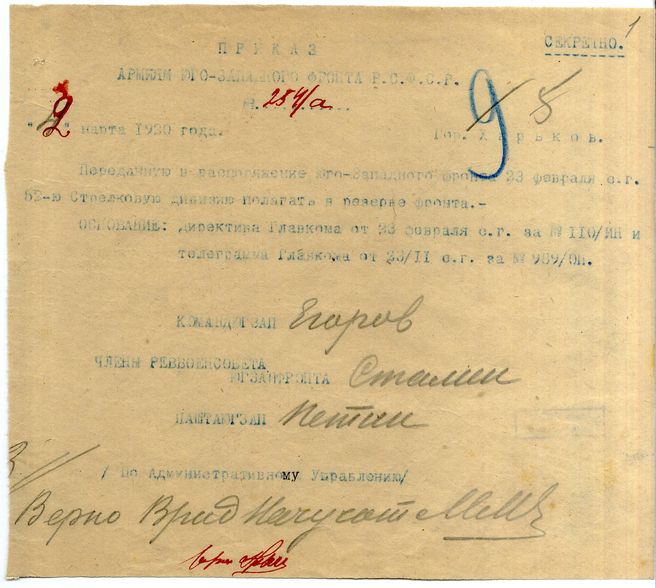 1
П Р И К А З
СЕКРЕТНО.
АРМИЯМ ЮГО-ЗАПАДНОГО ФРОНТА Р.С.Ф.С.Р.
№ 284/а
9 8
"2" марта 1920 года.
Гор. Х а р ь к о в.
Переданную в распоряжение Юго-Западного фронта 23 февраля с.г.
Стрелковую дивизию полагать в резерве фронта.-
ОСНОВАНИЕ: директива Главкома от 23 февраля с.г. за № 110/ИН и
телеграмма Главкома от 23/II с.г. за № 989/ОП.
КОМАНДЮГЗАП Егоров
ЧЛЕНЫ РЕВВОЕНСОВЕТА
ЮГЗАПФРОНТА Сталин
НАШТАЮГЗАП Петин
/ По Административному Управлению/
Верно Врид